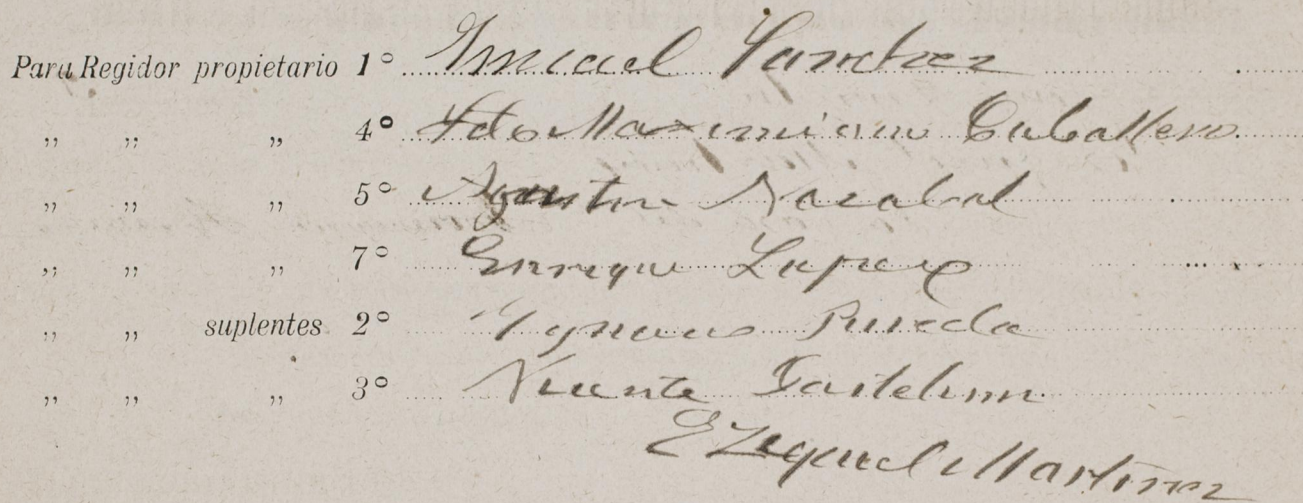 Para Regidor propietario 1º Ismael Sanchez
„ „ „ 4º Fdo Maximiano Caballero.
„ „ „ 5º Agustin
„ „ „ 7º Enrique Lopez
„ „ suplentes 2º Ygnacio Pineda
„ „ „ 3º Vicente Castelum
Ezequiel Martinez